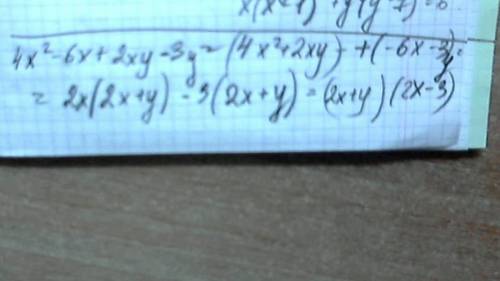 x(x-1) + y(y-7) = 0
4x²-6x+2xy-3y = (4x²+2xy) + (-6x-3y) =
= 2x(2x+y) - 3(2x+y) = (2x+y)(2x-3)